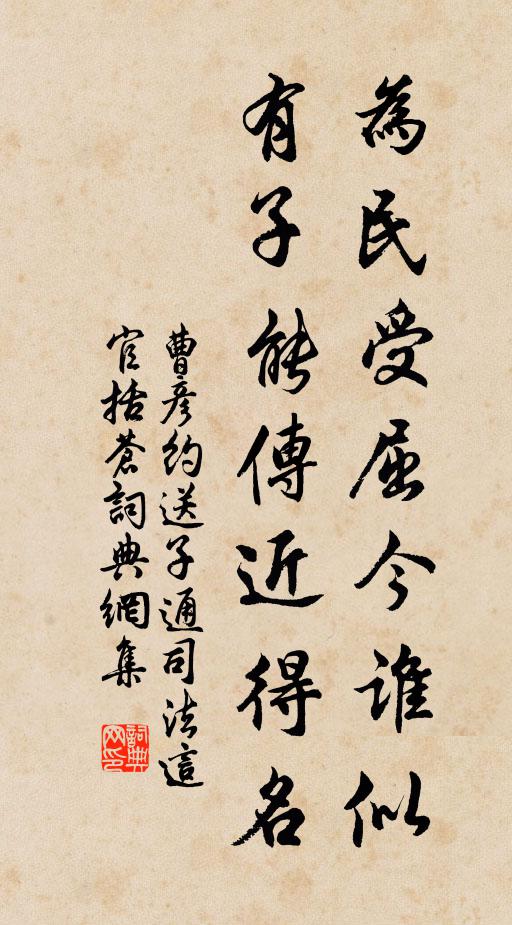 為民受屈今誰似
有子能傳近得名
曹彥約送子通司法這
官括蒼詞典網集
詞典网印